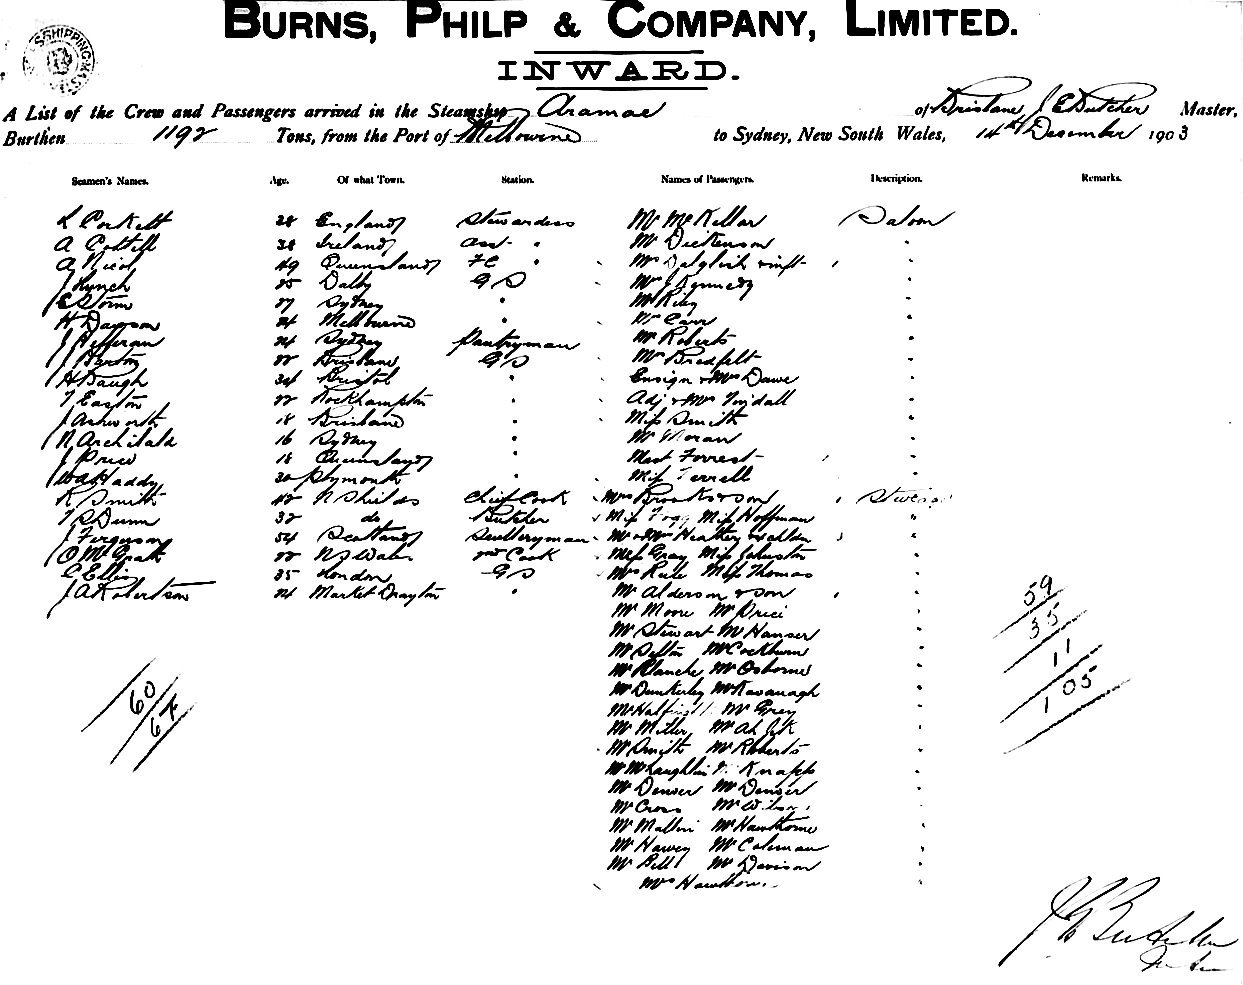 BURNS, PHILP & COMPANY, LIMITED.
INWARD.
A List of the Crew and Passengers arrived in the Steamship Aramac of Brisbane J E Butcher Master,
Burthen 1192 Tons, from the Port of Melbourne to Sydney, New South Wales, 14th December 1903
Seamen's Names. Age. Of what Town. Station. Names of Passengers. Description. Remarks.
28 England Stewardess Mr McKellar Saloon
A 38 Ireland Asst " Mr Dickenson "
A Nicol 49 Queensland FC " Mr Dalglish & inft "
J Lynch 25 Dalby GS Mr J Kennedy "
E Storm 27 Sydney " Mr Riley "
H Dawson 24 Melbourne " Mr Carr "
J Heffernan 24 Sydney Pantryman Mr Roberts "
J Barton 22 Brisbane GS Mr Bradfelt "
H Baugh 34 Bristol " Ensign & Mrs Dawe "
T Easton 22 Rockhampton " Adj & Mrs Tyndall "
J Ashworth 18 Brisbane " Miss Smith "
N Archibald 16 Sydney " Mr Moran "
J Price 18 Queensland " Mast Forrest "
W A Haddy 30 Plymouth " Miss Terrell "
R Smith 42 N Shields Chief Cook Mrs Brooks & son
T S Dunn 32 do Butcher Miss Fogg Miss Hoffman "
J Ferguson 54 Scotland Sculleryman Mr & Mrs Heather "
O McGrath 22 N S Wales 2nd Cook Miss Gray Miss Johnston "
C Ellis 35 London GS Mrs Rule Miss Thomas "
J A Robertson 24 Market Drayton " Mr Alderson & son "
Mr Moore Mr Price "
Mr Stewart Mr Hanser "
Mr Sefton Mr Cockburn "
Mr Blanche Mr Osborne "
Mr Dunkerley Mr Kavanagh "
Mr Grey "
Mr Miller Mr Ah "
Mr Smith Mr Roberts "
Mr McLaughlin Knapp "
Mr Denver Mr Denver "
Mr Cross Mr Wilson "
Mr Mallin Mr Hawthorne "
Mr Harvey Mr Coleman "
Mr Bell Mr Davison "
Mrs "
59
35
11
105
60
67
J E Butcher
Master